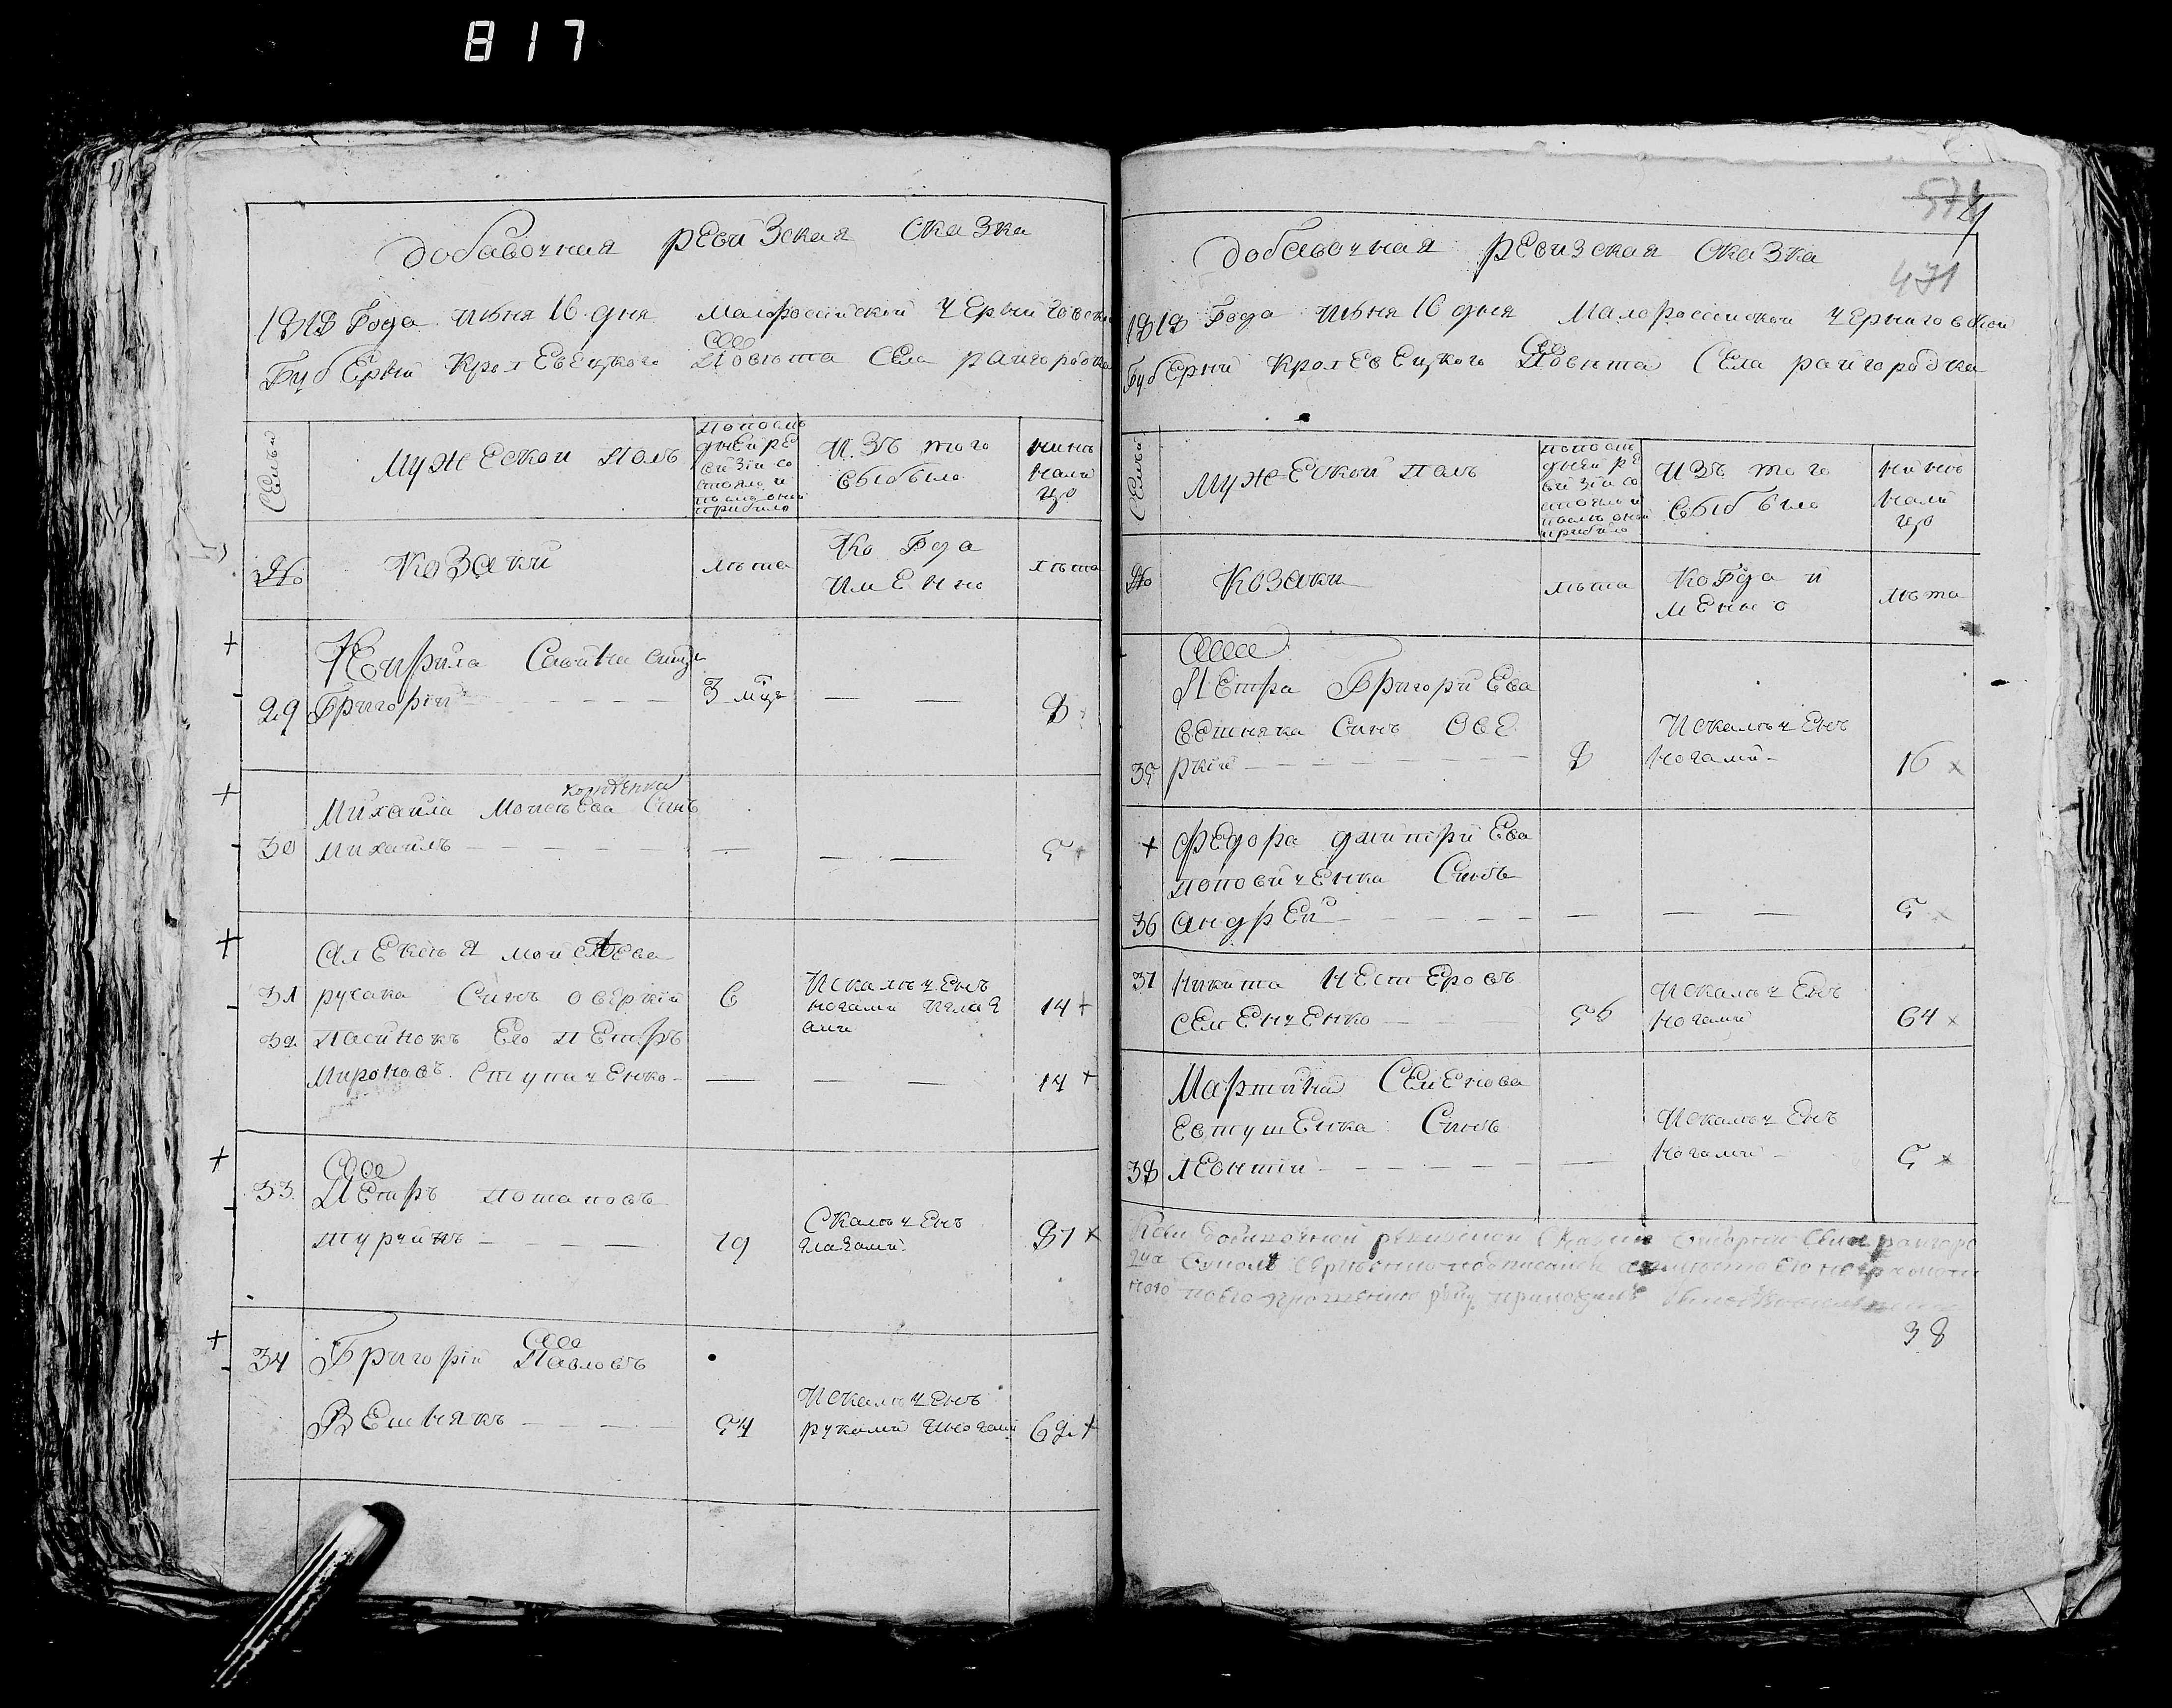 817
добавочная ревизская сказка
1818 Года июня 16 дня Малороссійской Черниговской
Губерніи Кролевецкого Повѣта Села райгородка
Семьи
Мужеской полъ
попослѣ
дней ре
визіи со
стояло и
послѣ оной
прибыло
Изъ того
выбыло
нинѣ
нали
цо
№
Козаки
лѣта
Когда
именно
лѣта
Кирила Савини синъ
29 Григорій 3 мця — — 8
Михаила Моисѣева Синъ
30 михаилъ — — — 5
Алексѣя моисѣева
31 русака Синъ оверкій 6 Искалѣченъ
ногами иглаз
ами 14
32 Пасинокъ Его Петръ
Мироновъ Ступиченко — — — 14
33 Петръ Потаповъ
Турчинъ 79 Скалѣченъ
глазами 87
34 Григорій Павловъ
Вешнякъ 54 Искалѣченъ
руками иногами 62
574
4
471
добавочная ревизская сказка
1818 Года июня 16 дня Малороссійской Черниговской
Губерніи Кролевецкого Повѣта Села райгородка
Семьи
Мужеской полъ
попослѣ
дней ре
визіи со
стояло и
послѣ оной
прибыло
Изъ того
выбыло
нинѣ
нали
цо
№
Козаки
лѣта
Когда и
менно
лѣта
Петра Григориева
вешняка Синъ Ове
35 ркій 8 Искалѣченъ
ногами 16
Федора дмитриева
поповиченка Синъ
36 андрей — — — 5
37 Никита Нестеровъ
Семенченко 56 Искалѣченъ
ногами 64
Мартина Семенова
Евтушенка Синъ
38 леонтій — Искалѣченъ
ногами 5
38